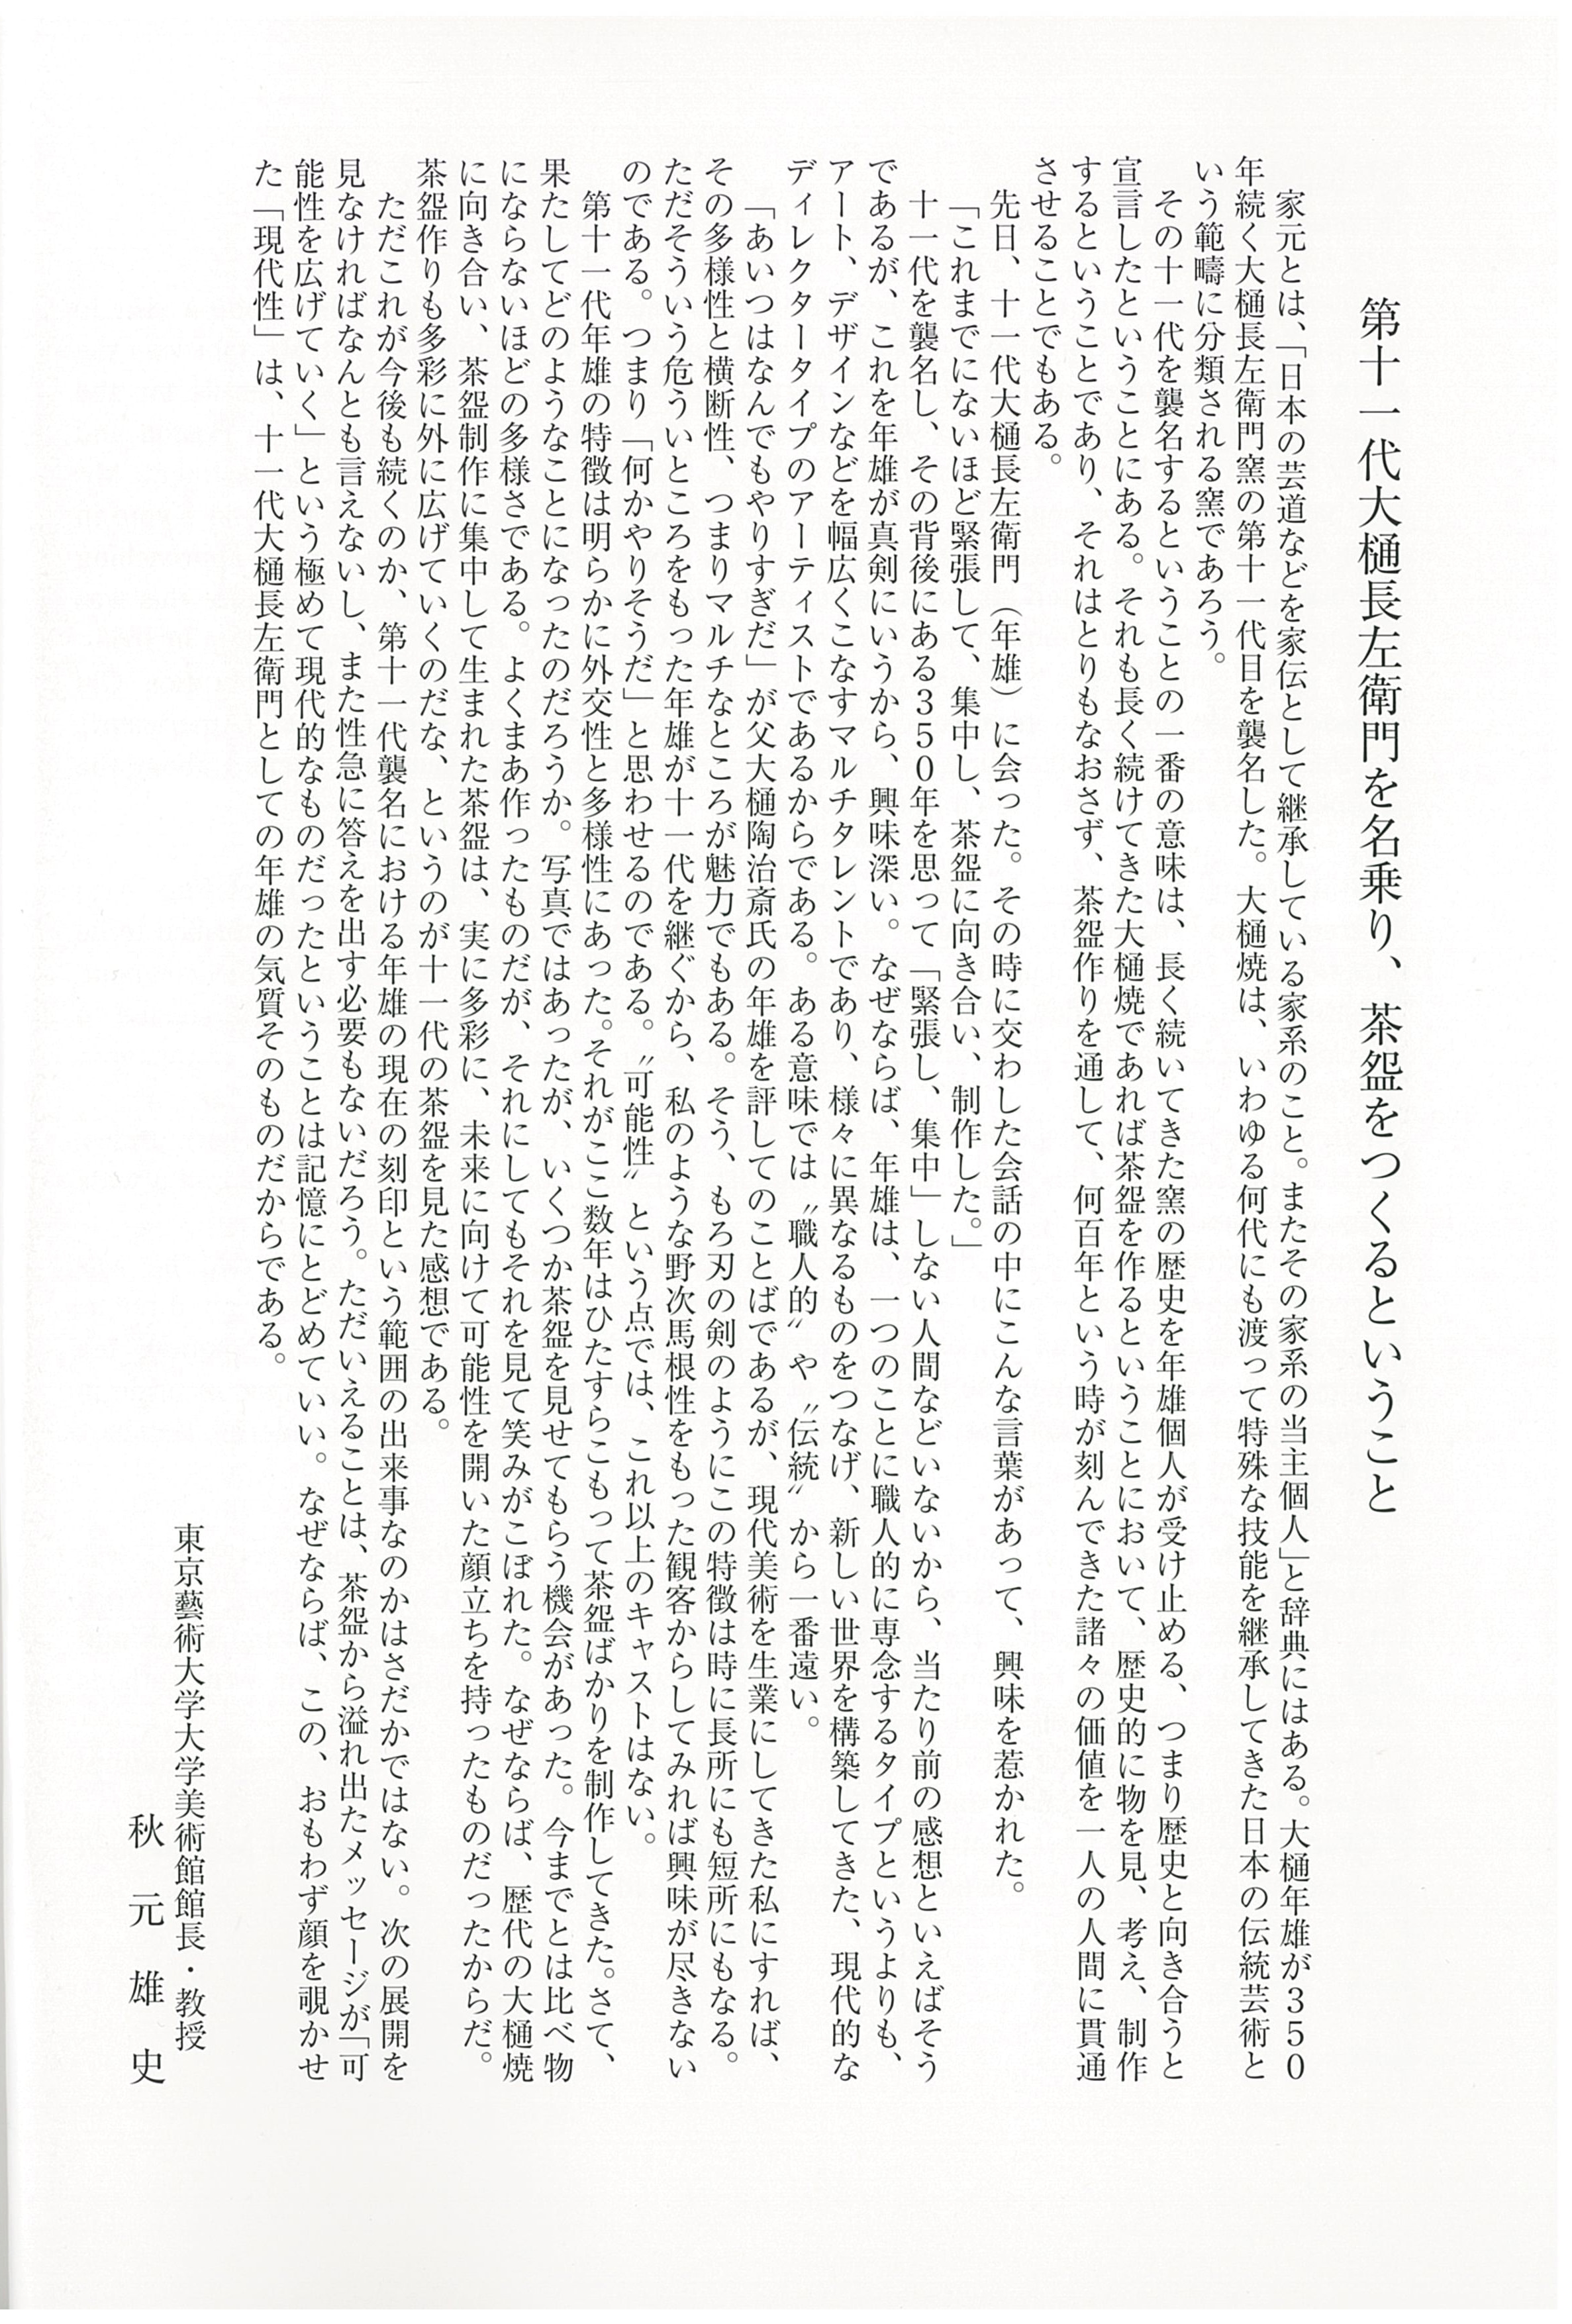 第十一代大樋長左衛門を名乗り、茶盌をつくるということ
家元とは、「日本の芸道などを家伝として継承している家系のこと。またその家系の当主個人」と辞典にはある。大樋年雄が350
年続く大樋長左衛門窯の第十一代目を襲名した。大樋焼は、いわゆる何代にも渡って特殊な技能を継承してきた日本の伝統芸術と
いう範疇に分類される窯であろう。
その十一代を襲名するということの一番の意味は、長く続いてきた窯の歴史を年雄個人が受け止める、つまり歴史と向き合うと
宣言したということにある。それも長く続けてきた大樋焼であれば茶盌を作るということにおいて、歴史的に物を見、考え、制作
するということであり、それはとりもなおさず、茶盌作りを通して、何百年という時が刻んできた諸々の価値を一人の人間に貫通
させることでもある。
先日、十一代大樋長左衛門（年雄）に会った。その時に交わした会話の中にこんな言葉があって、興味を惹かれた。
「これまでにないほど緊張して、集中し、茶盌に向き合い、制作した。」
十一代を襲名し、その背後にある350年を思って「緊張し、集中」しない人間などいないから、当たり前の感想といえばそう
であるが、これを年雄が真剣にいうから、興味深い。なぜならば、年雄は、一つのことに職人的に専念するタイプというよりも、
アート、デザインなどを幅広くこなすマルチタレントであり、様々に異なるものをつなげ、新しい世界を構築してきた、現代的な
ディレクタータイプのアーティストであるからである。ある意味では〝職人的〟や〝伝統〟から一番遠い。
「あいつはなんでもやりすぎだ」が父大樋陶冶斎氏の年雄を評してのことばであるが、現代美術を生業にしてきた私にすれば、
その多様性と横断性、つまりマルチなところが魅力でもある。そう、もろ刃の剣のようにこの特徴は時に長所にも短所にもなる。
ただそういう危ういところをもった年雄が十一代を継ぐから、私のような野次馬根性をもった観客からしてみれば興味が尽きない
のである。つまり「何かやりそうだ」と思わせるのである。〝可能性〟という点では、これ以上のキャストはない。
第十一代年雄の特徴は明らかに外交性と多様性にあった。それがここ数年はひたすらこもって茶盌ばかりを制作してきた。さて、
果たしてどのようなことになったのだろうか。写真ではあったが、いくつか茶盌を見せてもらう機会があった。今までとは比べ物
にならないほどの多様さである。よくまあ作ったものだが、それにしてもそれを見て笑みがこぼれた。なぜならば、歴代の大樋焼
に向き合い、茶盌制作に集中して生まれた茶盌は、実に多彩に、未来に向けて可能性を開いた顔立ちを持ったものだったからだ。
茶盌作りも多彩に外に広げていくのだな、というのが十一代の茶盌を見た感想である。
ただこれが今後も続くのか、第十一代襲名における年雄の現在の刻印という範囲の出来事なのかはさだかではない。次の展開を
見なければなんとも言えないし、また性急に答えを出す必要もないだろう。ただいえることは、茶盌から溢れ出たメッセージが「可
能性を広げていく」という極めて現代的なものだったということは記憶にとどめていい。なぜならば、この、おもわず顔を覗かせ
た「現代性」は、十一代大樋長左衛門としての年雄の気質そのものだからである。
東京藝術大学大学美術館館長・教授
秋元雄史